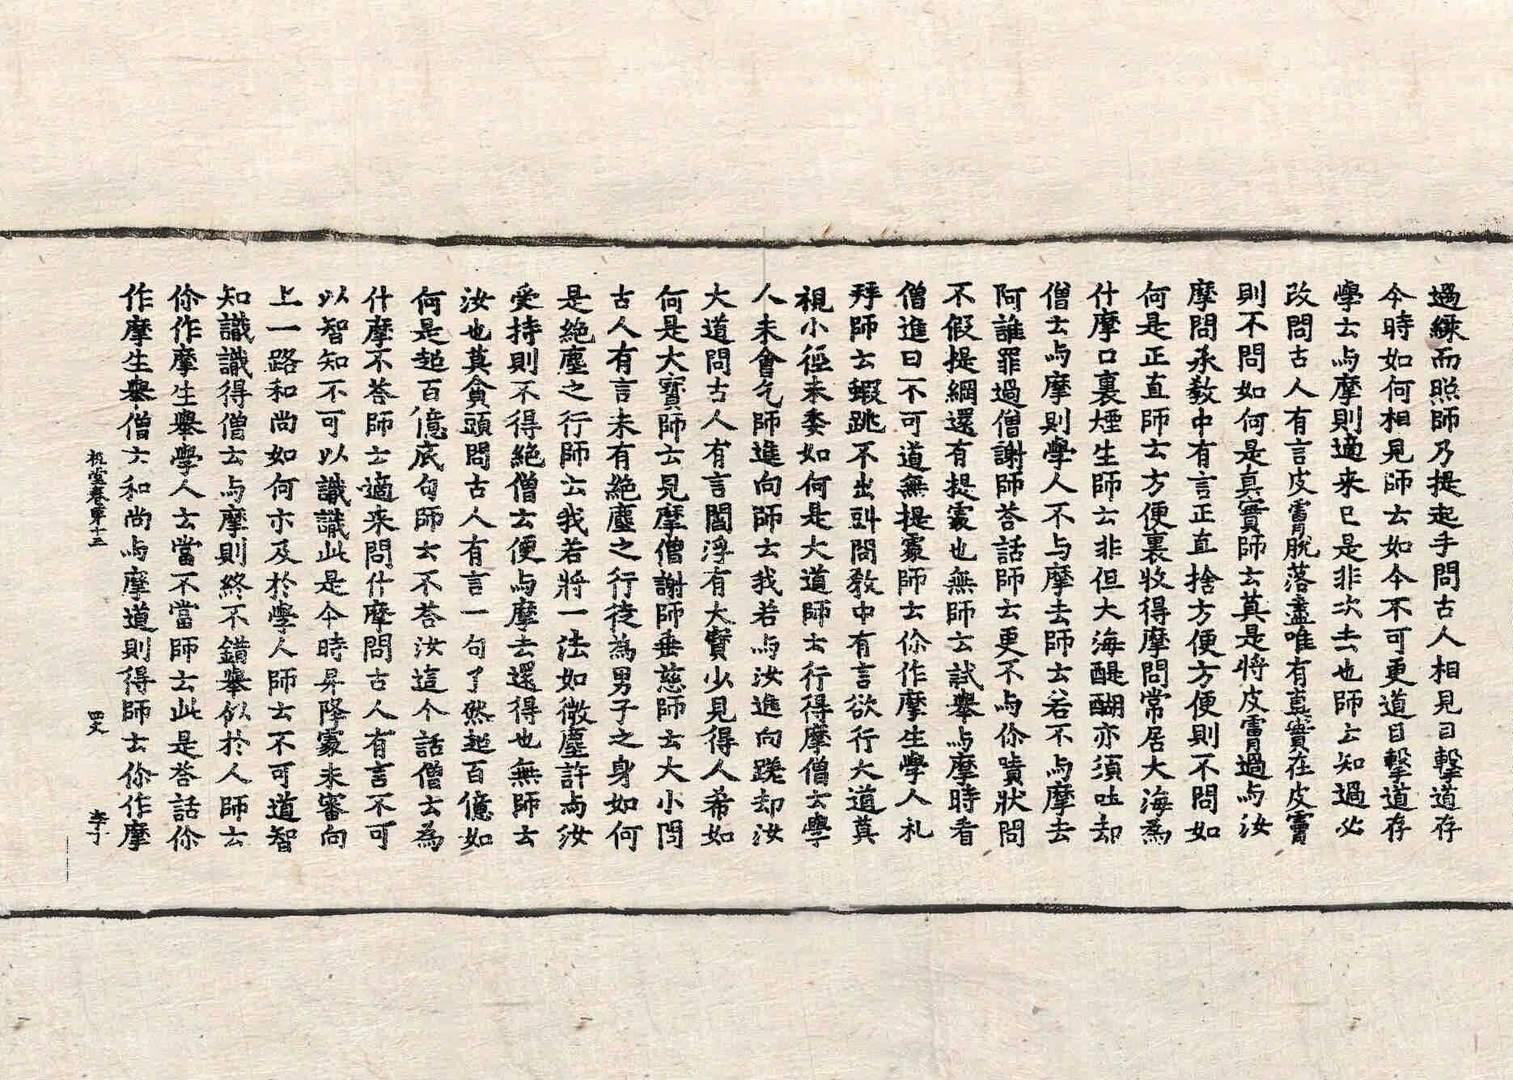 過綠而照師乃提起手問古人相見目擊道存
今時如何相見師云如今不可更道目擊道存
學云与摩則適來已是非次去也師云知過必
改問古人有言皮膚脫落盡唯有真實在皮膚
則不問如何是真實師云莫是將皮膚過与汝
摩問承教中有言正直捨方便方便則不問如
何是正直師云方便裏收得摩問常居大海為
什摩口裏煙生師云非但大海醍醐亦須吐却
僧云与摩則學人不与摩去師云若不与摩去
阿誰罪過僧謝師荅話師云更不与你嘖狀問
不假提綱還有提處也無師云試舉与摩時看
僧進曰不可道無提處師云你作摩生學人礼
拜師云蝦跳不出㪷問教中有言欲行大道莫
視小徑未委如何是大道師云行得摩僧云學
人未會乞師進向師云我若与汝進向蹉却汝
大道問古人有言閻浮有大寶少見得人希如
何是大寶師云見摩僧謝師垂慈師云大小問
古人有言未有絕塵之行徒為男子之身如何
是絕塵之行師云我若將一法如微塵許与汝
受持則不得絕僧云便与摩去還得也無師云
汝也莫貪頭問古人有言一句了然超百億如
何是超百億底句師云不荅汝這个話僧云為
什摩不荅師云適來問什摩問古人有言不可
以智知不可以識識此是今時昇降處未審向
上一路和尚如何示及於學人師云不可道智
知識識得僧云与摩則終不錯舉似於人師云
你作摩生舉學人云當不當師云此是荅話你
作摩生舉僧云和尚与摩道則得師云你作摩
祖堂卷第十三 四丈 李丁